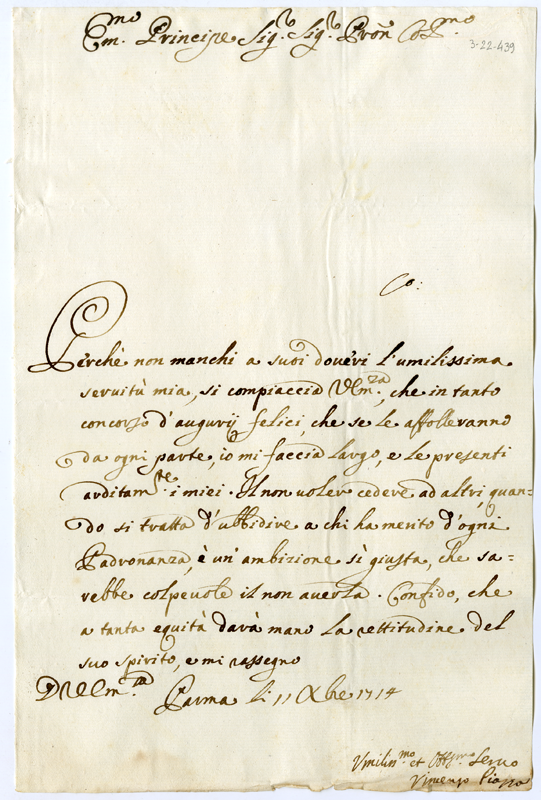 Em.mo Principe Sig.r Sig.r Pron Col.mo
3-22-439
Perchè non manchi a suoi doveri l'umilissima
servitù mia, si compiaccia V Em.za, che in tanto
concorso d'augurij felici, che se le affolleranno
da ogni parte, io mi faccia largo, e le presenti
arditam.te i miei. Il non voler cedere ad altri, quan-
do si tratta d'ubbidire a chi ha merito d'ogni
Padronanza, è un'ambizione sì giusta, che sa-
rebbe colpevole il non averla. Confido, che
a tanta equità darà mano la rettitudine del
suo spirito, e mi rassegno
D V Em.za
Parma li 11 Xbre 1714
Vmilis.mo et Obb.mo Servo
Vincenzo Piazza